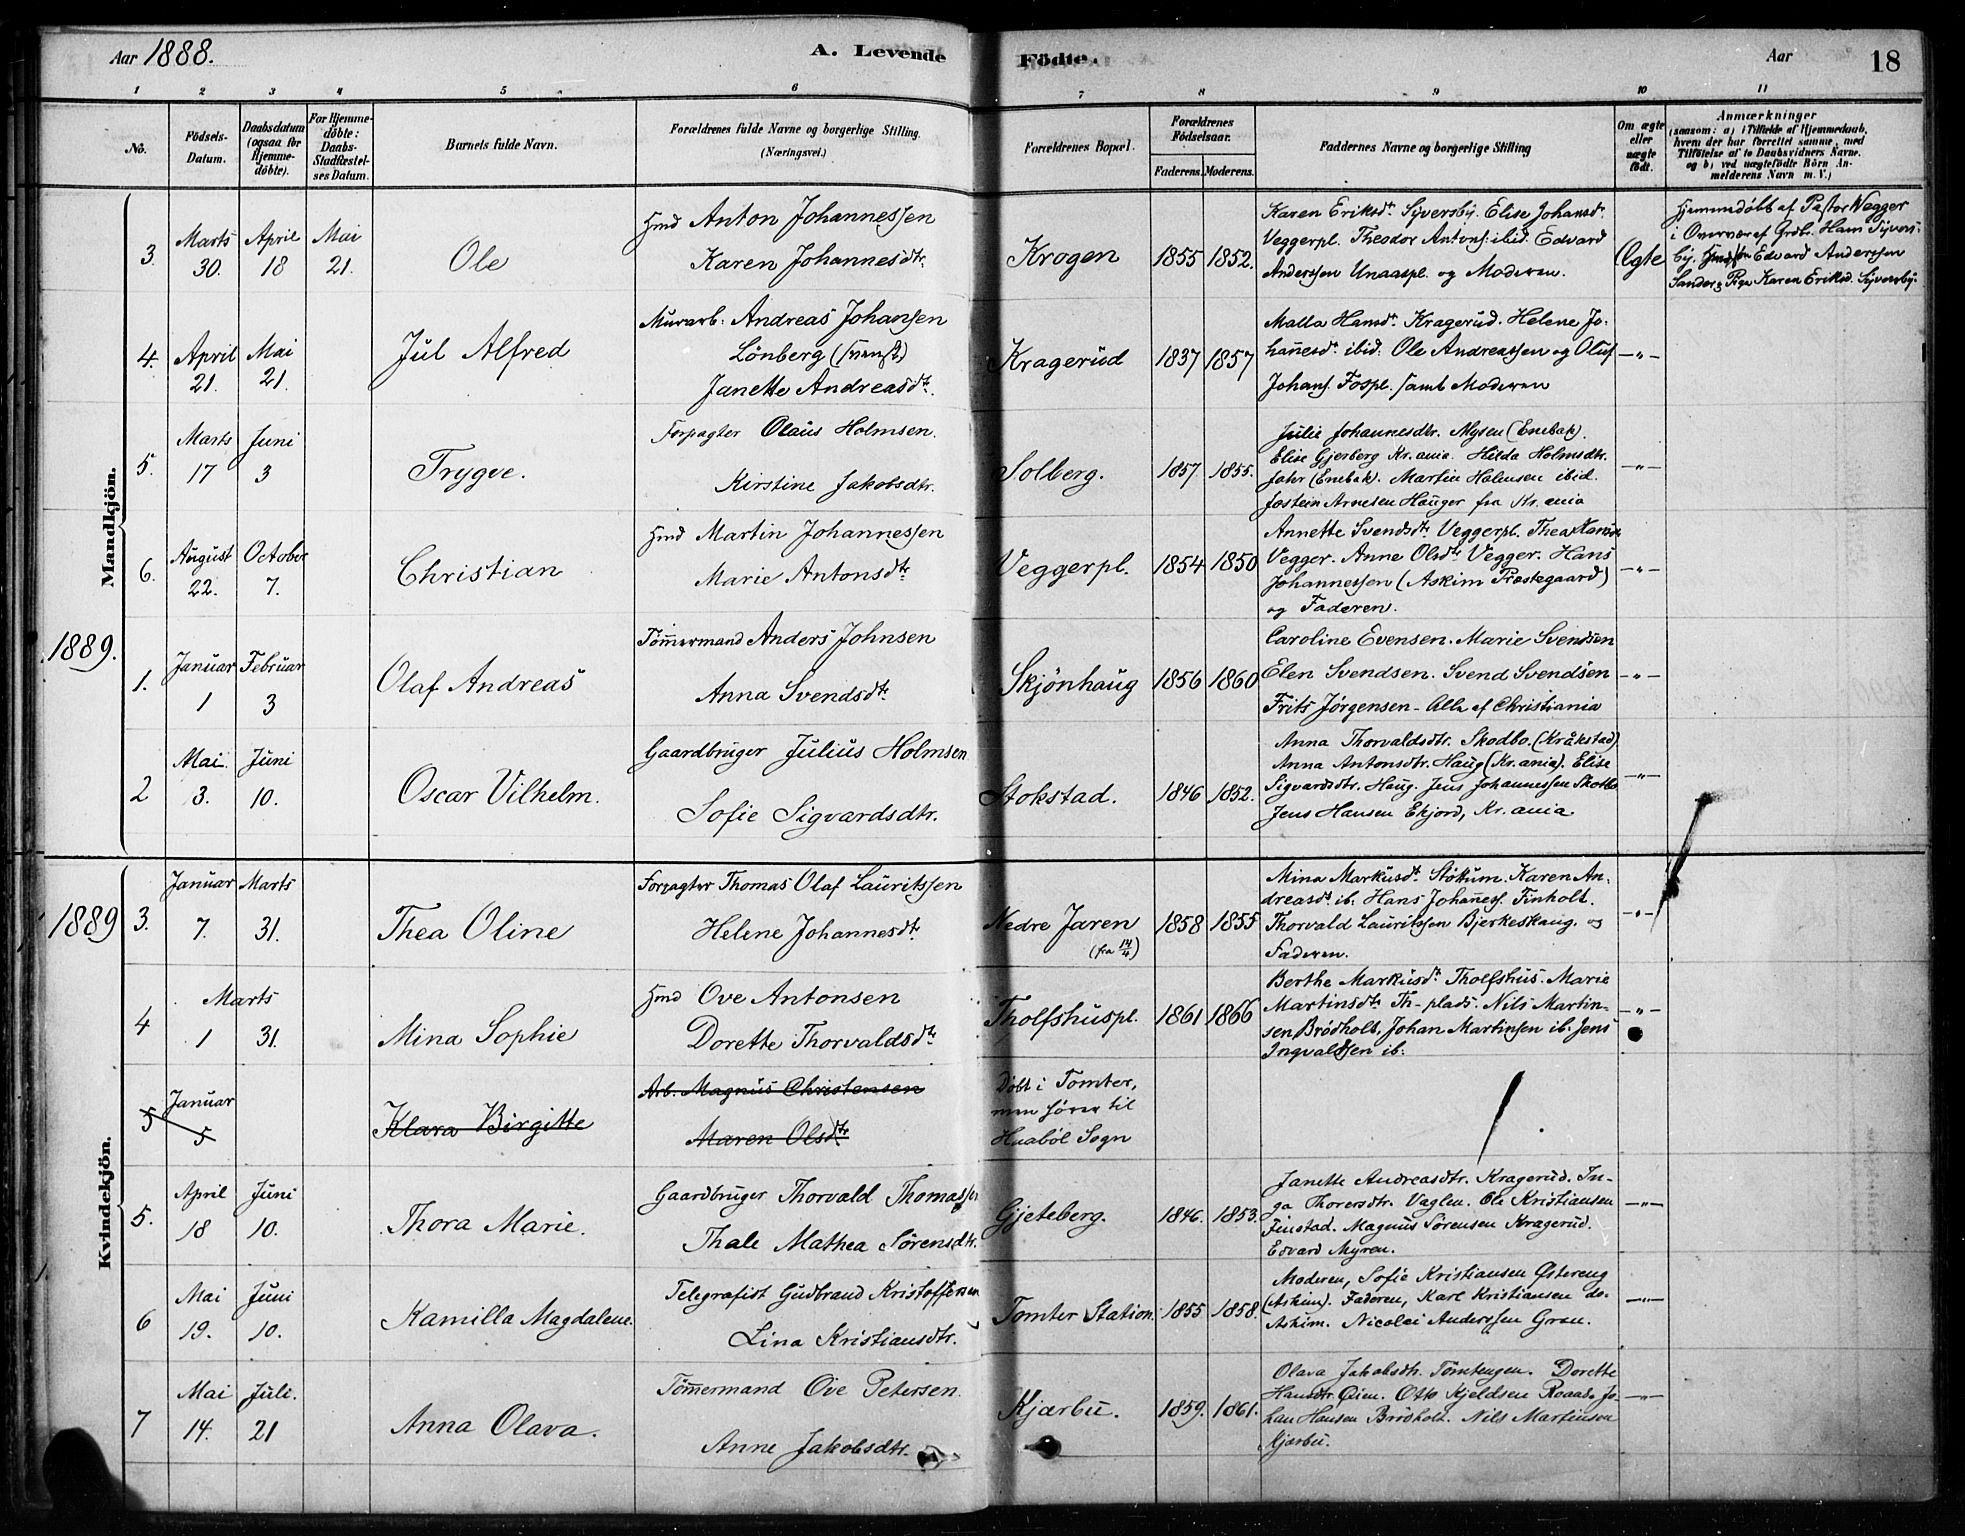 Aar 1888.
A. Levende Födte.
Aar
18
1 2 3 4 5 6 7 8 9 10 11
No.
Födsels-Datum.
Daabsdatum (ogsaa for Hjemme-döbte).
For Hjemme-döbte: Daabs-Stadfæstel-ses Datum.
Barnets fulde Navn.
Forældrenes fulde Navne og borgerlige Stilling.
(Næringsvei.)
Forældrenes Bopæl.
Forældrenes Födselsaar.
Faderens. Moderens.
Faddernes Navne og borgerlige Stilling
Om ægte eller uægte födt.
Anmærkninger
(saasom: a) i Tilfælde af Hjemmedaab,
hvem der har forrettet samme, med
Tilföielse af to Daabsvidners Navne.
og b) ved uægtefödte Börn An-
melderens Navn m. V.)
Mandkjön.
3.
Marts 30.
April 18
Mai 21.
Ole
Hmd Anton Johannessen
Karen Johannesdtr.
Krogen
1855 1852.
Karen Eriksdtr. Syversby. Elise Johansdtr.
Veggerpl. Theodor Antons. ibid. Edvard
Anderssen Unaaspl. og Moderen.
Ægte
Hjemmedøbt af Pastor Vegger
i Overvær af Grdbr. Hans Syvers-
by. Edvard Anderssen
Sander & Pige Karen Eriksd. Syversby.
4.
April 21.
Mai 21.
Jul Alfred
Murarb. Andreas Johansen
Lönberg (svensk)
Janette Andreasdtr.
Kragerud
1837 1857
Malla Hansdtr. Kragerud. Helene Jo-
hanesdtr ibid. Ole Andreassen og Oluf
Johans. Fospl. samt Moderen
—"—
5.
Marts 17
Juni 3
Trygve.
Forpagter Olaus Holmsen.
Kirstine Jakobsdtr.
Solberg.
1857 1855.
Julie Johannesdtr. Mysen (Enebak).
Elise Gjerberg Kr.ania. Hilda Holmsdtr.
Jahr (Enebak). Martin Holmsen ibid.
Jostein Arnesen Hauger fra Kr.ania
—"—
6.
August 22.
October 7.
Christian
Hmd Martin Johannessen
Marie Antonsdtr.
Veggerpl.
1854 1850
Annette Svendsdtr Veggerpl. Thea Hansdtr
Vegger. Anne Olsdtr Vegger. Hans
Johannessen (Askim Præstegaard)
og Faderen.
—"—
1889.
1.
Januar 1
Februar 3
Olaf Andreas
Tömmermand Anders Johnsen
Anna Svendsdtr.
Skjönhaug
1856 1860
Caroline Evensen. Marie Svendsen
Elen Svendsen. Svend Svendsen
Frits Jørgensen - Alle af Christiania
—"—
2
Mai. 3.
Juni 10.
Oscar Vilhelm.
Gaardbruger Julius Holmsen
Sofie Sigvardsdtr.
Stokstad.
1846 1852.
Anna Thorvaldsdtr. Skodbo. (Kråkstad)
Anna Antonsdtr. Haug (Kr.ania). Elise
Sigvardsdtr. Haug. Jens Johannessen Skotbo
Jens Hansen Ekjord, Kr.ania.
—"—
Kvindekjön.
1889
3.
Januar 7.
Marts 31.
Thea Oline
Forpagter Thomas Olaf Lauritssen
Helene Johannesdtr.
Nedre Jaren
(fra 14/4)
1858 1855
Mina Markusdtr. Stökum. Karen An-
dreasdtr ib. Hans Johaness. Finholt.
Thorvald Lauritssen Bjerkeskaug. og
Faderen.
—"—
4
Marts
1 31.
Mina Sophie
Hmd Ove Antonsen
Dorette Thorvaldsdtr.
Tholfshuspl.
1861 1866
Berthe Markusdtr Tholfshus. Marie
Martinsdtr Th-plads. Nils Martin-
sen Brödholt. Johan Martinsen ib. Jens
Ingvaldsen ib.
—"—
5
Januar 5
Klara Birgitte
Arb. Magnus Christensen
Maren Olsdtr
Döbt i Tomter,
men hörer til
Haaböl Sogn
5.
April 18
Juni 10.
Thora Marie.
Gaardbruger Thorvald Thomassen
Thale Mathea Sörensdtr.
Gjeteberg.
1846. 1853.
Janette Andreasdtr. Kragerud. In-
ga Thorersdtr. Vaglen. Ole Kristiansen
Finstad. Magnus Sörensen Kragerud.
Edvard Myren.
—"—
6
Mai 19.
Juni 10.
Kamilla Magdalene.
Telegrafist Gudbrand Kristoffersen
Lina Kristiansdtr.
Tomter Station.
1855 1858.
Moderen, Sofie Kristiansen Østereng
(Askim). Faderen, Karl Kristiansen do.
Askim. Nicolei Anderssen Gran.
—"—
7
Mai 14.
Juli. 21
Anna Olava.
Tömmermand Ove Petersen.
Anne Jakobsdtr.
Kjærbu.
1859. 1861.
Olava Jakobsdtr. Tomtengen. Dorette
Hansdtr. Øien. Otto Kjeldsen Raaas. Jo-
han Hansen Brödholt. Nils Martinsen
Kjærbu.
—"—